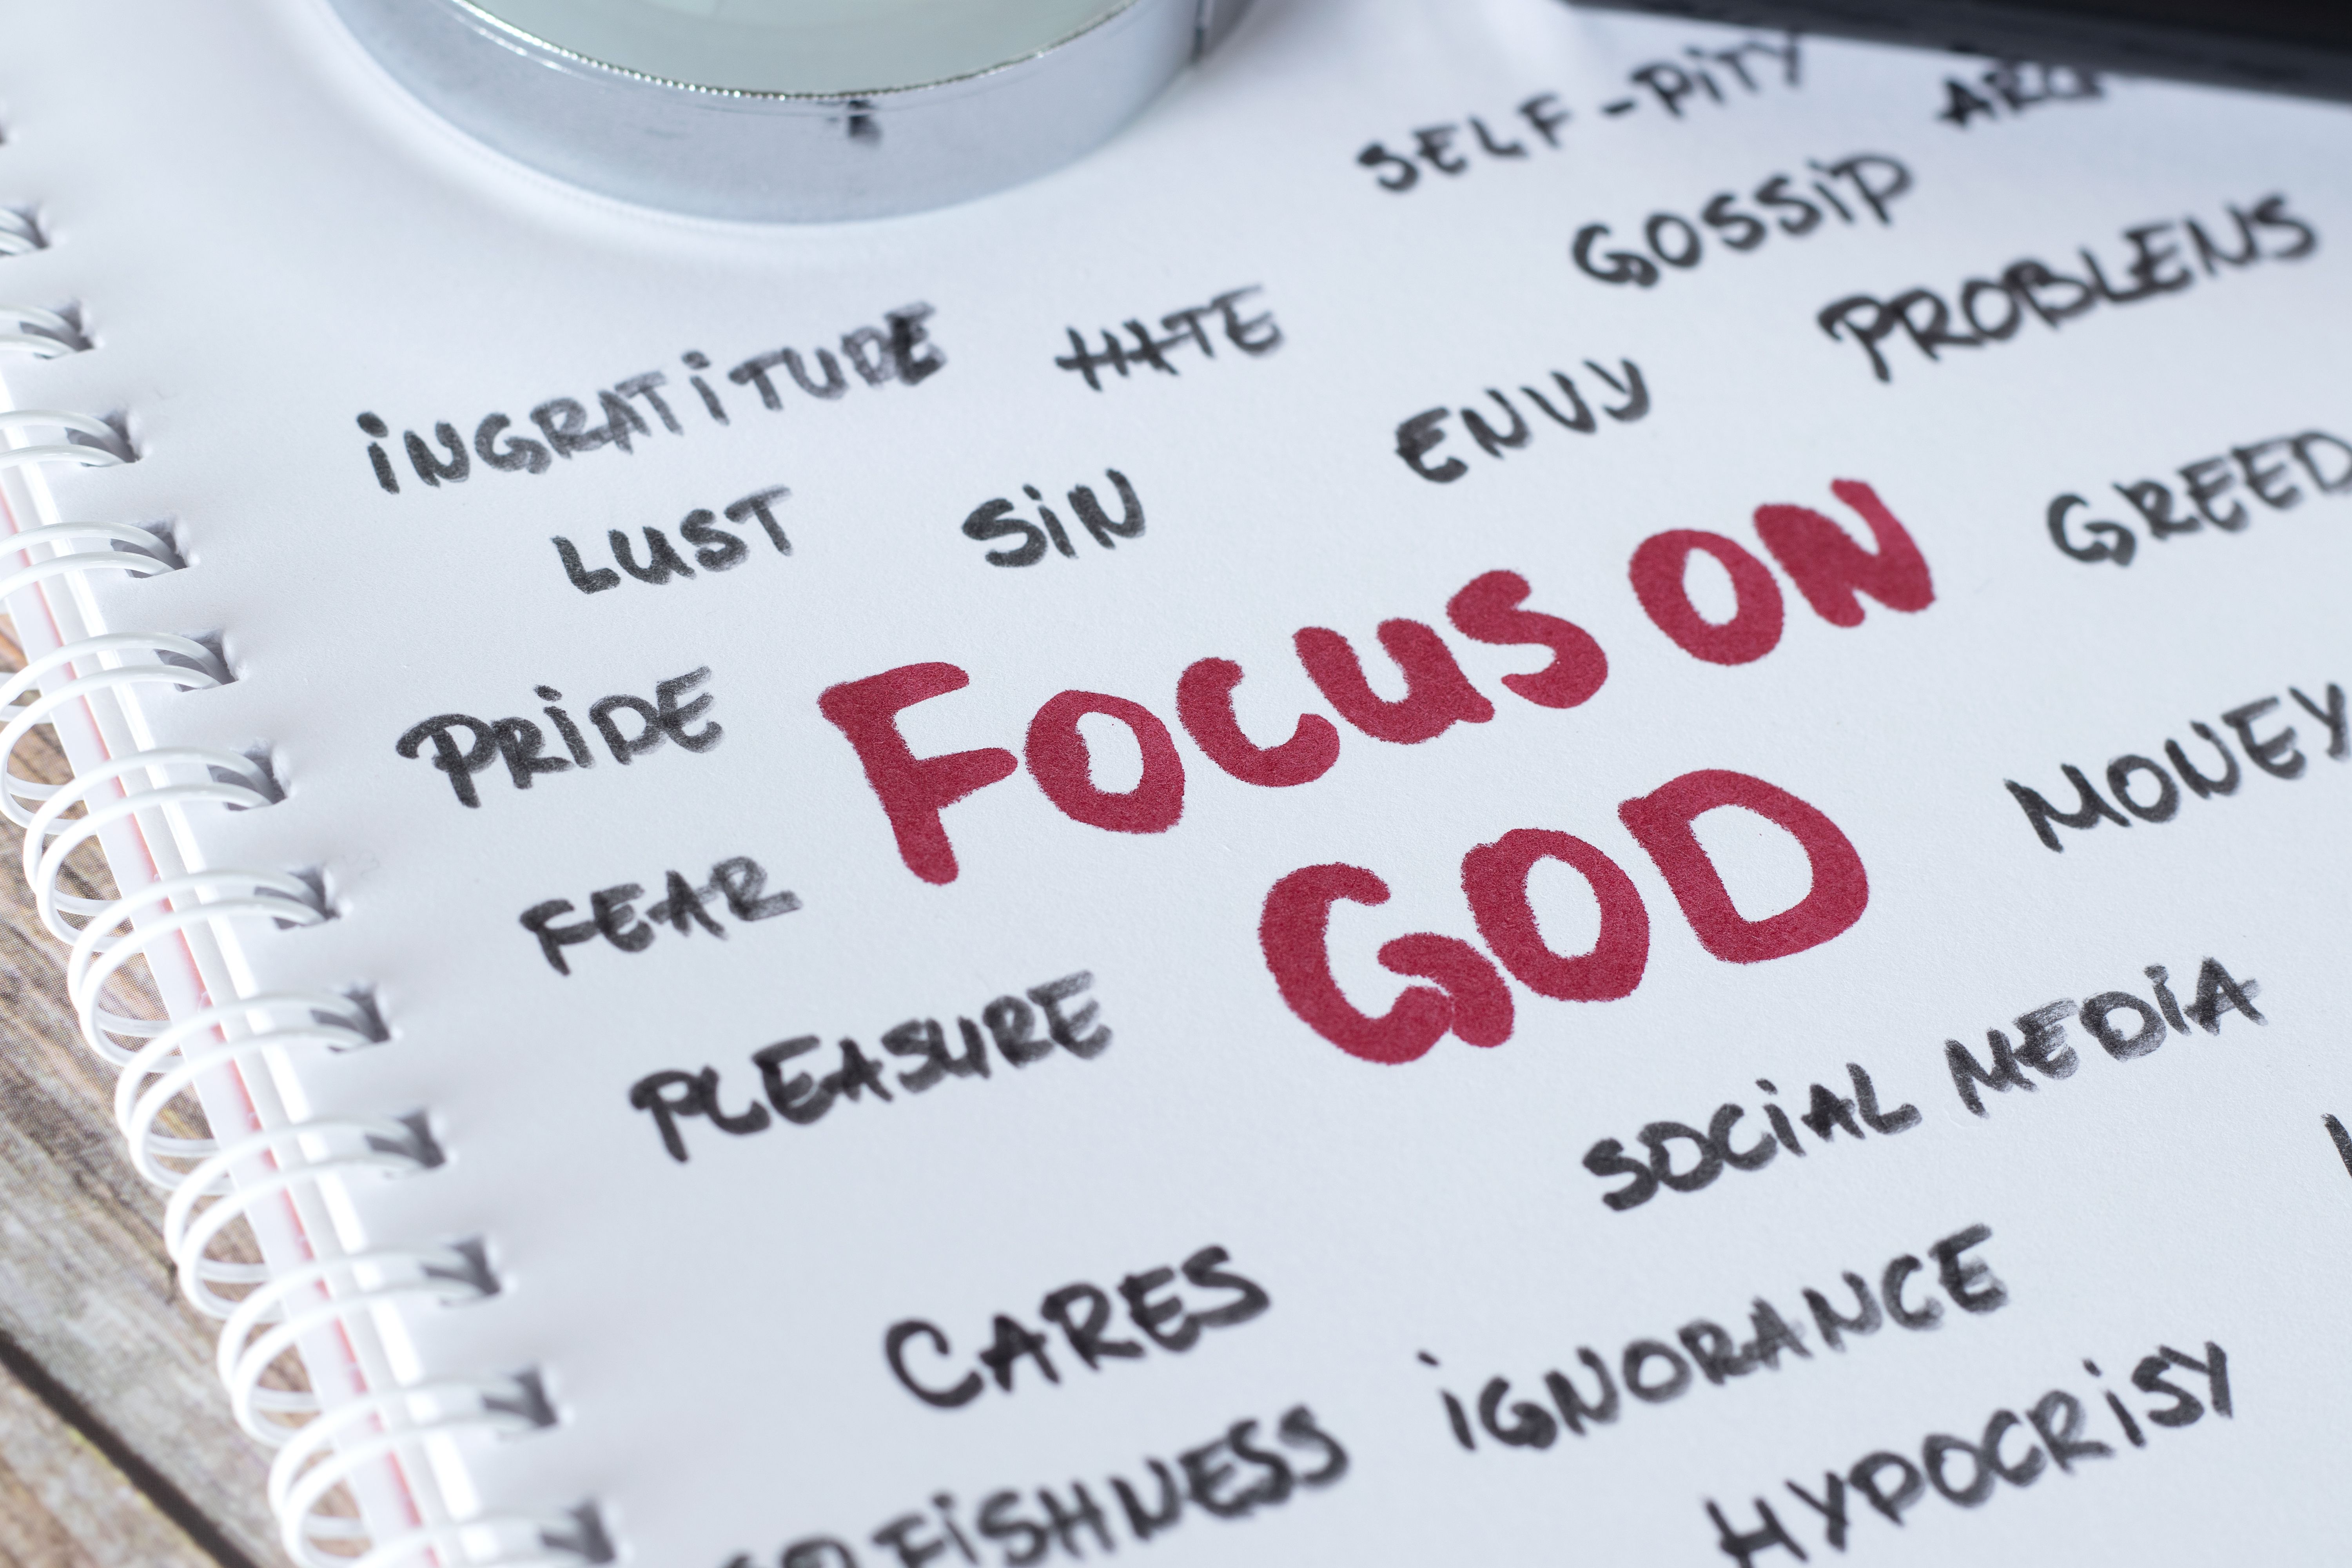 SELF-PITY
GOSSIP
PROBLEMS
INGRATITUDE HATE
ENVY
LUST SIN
GREED
PRIDE
FOCUS ON
GOD
MONEY
FEAR
PLEASURE
SOCIAL MEDIA
CARES
IGNORANCE
HYPOCRISY